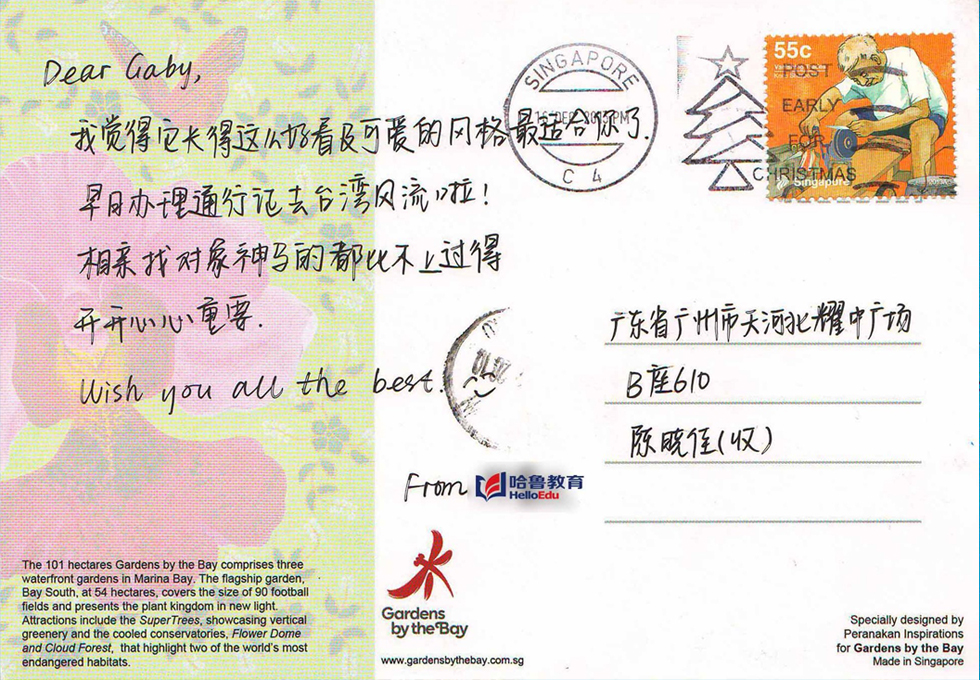 Dear Gaby,
我觉得它长得这么好看及可爱的风格最适合你了.
早日办理通行记去台湾风流啦!
相亲找对象神马的都比不上过得
开开心心重要.
Wish you all the best.
From 哈鲁教育
HelloEdu
SINGAPORE
C 4
55c
Singapore
POST
EARLY
FOR
CHRISTMAS
广东省广州市天河北耀中广场
B座610
陈晓佳(收)
The 101 hectares Gardens by the Bay comprises three
waterfront gardens in Marina Bay. The flagship garden,
Bay South, at 54 hectares, covers the size of 90 football
fields and presents the plant kingdom in new light.
Attractions include the SuperTrees, showcasing vertical
greenery and the cooled conservatories, Flower Dome
and Cloud Forest, that highlight two of the world's most
endangered habitats.
Gardens
by the Bay
www.gardensbythebay.com.sg
Specially designed by
Peranakan Inspirations
for Gardens by the Bay
Made in Singapore